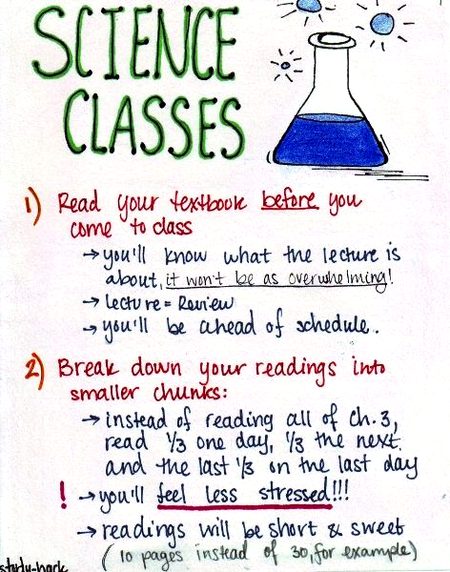 SCIENCE
CLASSES
1) Read your textbook before you
come to class
→ you'll know what the lecture is
about, it won't be as overwhelming!
→ lecture = Review
→ you'll be ahead of schedule.
2) Break down your readings into
smaller chunks:
→ instead of reading all of ch. 3,
read 1/3 one day, 1/3 the next
and the last 1/3 on the last day
! → you'll feel less stressed!!!
→ readings will be short & sweet
(10 pages instead of 30, for example)
study-hack